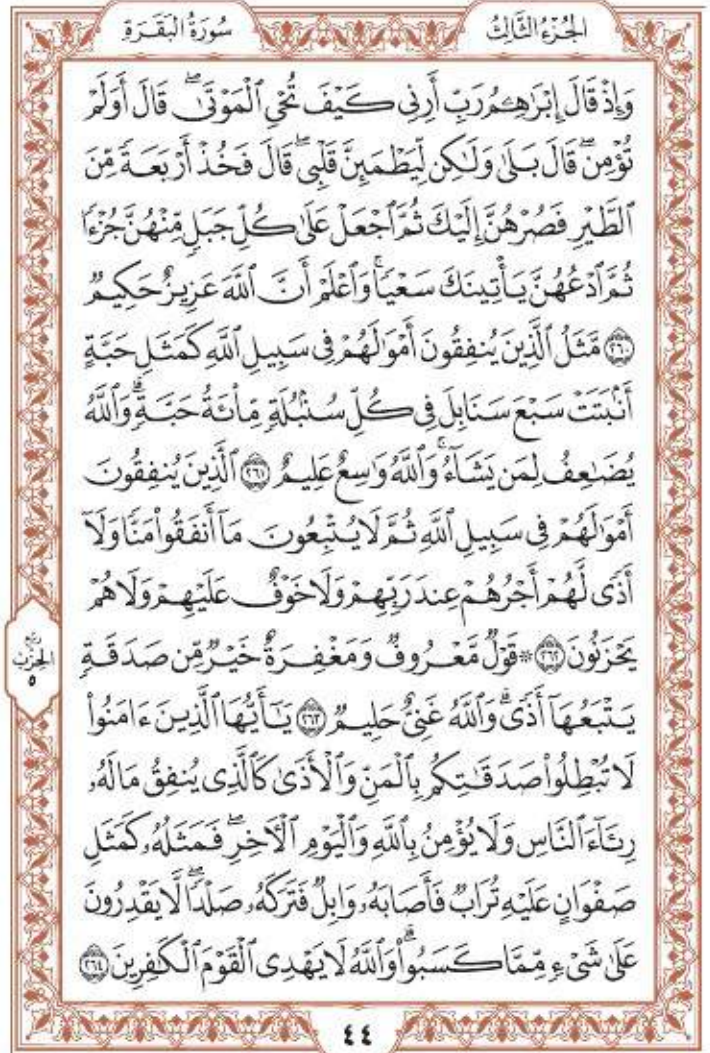 الجُزْءُ الثَّالِثُ
سُورَةُ البَقَرَةِ
وَإِذْ قَالَ إِبْرَٰهِـۧمُ رَبِّ أَرِنِى كَيْفَ تُحْىِ ٱلْمَوْتَىٰۖ قَالَ أَوَلَمْ
تُؤْمِنۖ قَالَ بَلَىٰ وَلَـٰكِن لِّيَطْمَئِنَّ قَلْبِىۖ قَالَ فَخُذْ أَرْبَعَةً مِّنَ
ٱلطَّيْرِ فَصُرْهُنَّ إِلَيْكَ ثُمَّ ٱجْعَلْ عَلَىٰ كُلِّ جَبَلٍ مِّنْهُنَّ جُزْءًا
ثُمَّ ٱدْعُهُنَّ يَأْتِينَكَ سَعْيًاۚ وَٱعْلَمْ أَنَّ ٱللَّهَ عَزِيزٌ حَكِيمٌ
٢٦٠ مَّثَلُ ٱلَّذِينَ يُنفِقُونَ أَمْوَٰلَهُمْ فِى سَبِيلِ ٱللَّهِ كَمَثَلِ حَبَّةٍ
أَنۢبَتَتْ سَبْعَ سَنَابِلَ فِى كُلِّ سُنۢبُلَةٍ مِّا۟ئَةُ حَبَّةٍۗ وَٱللَّهُ
يُضَـٰعِفُ لِمَن يَشَآءُۚ وَٱللَّهُ وَٰسِعٌ عَلِيمٌ ٢٦١ ٱلَّذِينَ يُنفِقُونَ
أَمْوَٰلَهُمْ فِى سَبِيلِ ٱللَّهِ ثُمَّ لَا يُتْبِعُونَ مَآ أَنفَقُوا۟ مَنًّا وَلَآ
أَذًى لَّهُمْ أَجْرُهُمْ عِندَ رَبِّهِمْ وَلَا خَوْفٌ عَلَيْهِمْ وَلَا هُمْ
يَحْزَنُونَ ٢٦٢ ۞ قَوْلٌ مَّعْرُوفٌ وَمَغْفِرَةٌ خَيْرٌ مِّن صَدَقَةٍ
رُبْعُ
الحِزْبِ
٥
يَتْبَعُهَآ أَذًىۗ وَٱللَّهُ غَنِىٌّ حَلِيمٌ ٢٦٣ يَـٰٓأَيُّهَا ٱلَّذِينَ ءَامَنُوا۟
لَا تُبْطِلُوا۟ صَدَقَـٰتِكُم بِٱلْمَنِّ وَٱلْأَذَىٰ كَٱلَّذِى يُنفِقُ مَالَهُۥ
رِئَآءَ ٱلنَّاسِ وَلَا يُؤْمِنُ بِٱللَّهِ وَٱلْيَوْمِ ٱلْـَٔاخِرِۖ فَمَثَلُهُۥ كَمَثَلِ
صَفْوَانٍ عَلَيْهِ تُرَابٌ فَأَصَابَهُۥ وَابِلٌ فَتَرَكَهُۥ صَلْدًاۖ لَّا يَقْدِرُونَ
عَلَىٰ شَىْءٍ مِّمَّا كَسَبُوا۟ۗ وَٱللَّهُ لَا يَهْدِى ٱلْقَوْمَ ٱلْكَـٰفِرِينَ ٢٦٤
٤٤